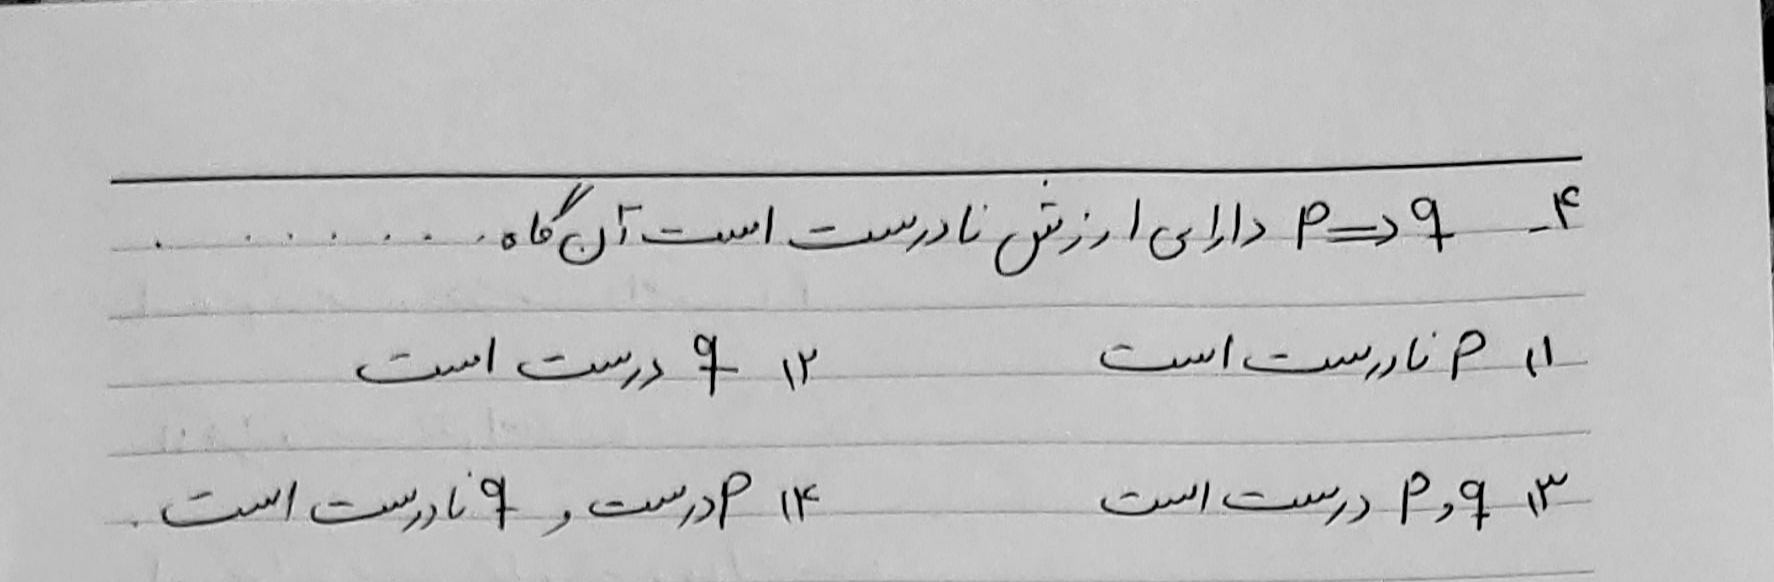 ۴ـ p ⇒ q دارای ارزش نادرست است آن گاه . . . . . . . .
۱) p نادرست است ۲) q درست است
۳) p و q درست است ۴) p درست و q نادرست است .